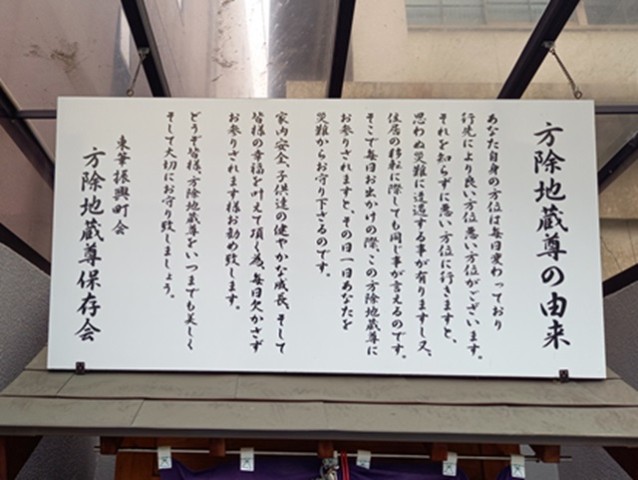 方除地蔵尊の由来
あなた自身の方位は毎日変わっており
行先により良い方位悪い方位がございます。
それを知らずに悪い方位に行きますと、
思わぬ災難に遭遇する事が有りますし又、
住居の移転に際しても同じ事が言えるのです。
そこで毎日お出かけの際、この方除地蔵尊に
お参りされますと、その日一日あなたを
災難からお守り下さるのです。
家内安全、子供達の健やかな成長、そして
皆様の幸福を叶えて頂く為、毎日欠かさず
お参りされます様お勧め致します。
どうぞ皆様、方除地蔵尊をいつまでも美しく
そして大切にお守り致しましょう。
東華振興町会
方除地蔵尊保存会